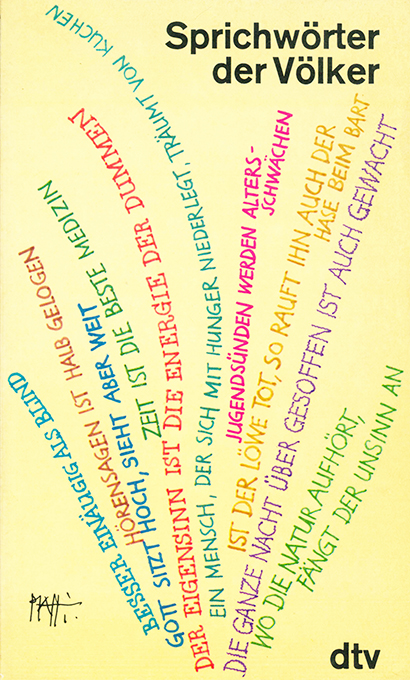 Sprichwörter
der Völker
BESSER EINÄUGIG ALS BLIND
GOTT SITZT HOCH, SIEHT ABER WEIT
HÖRENSAGEN IST HALB GELOGEN
ZEIT IST DIE BESTE MEDIZIN
DER EIGENSINN IST DIE ENERGIE DER DUMMEN
EIN MENSCH, DER SICH MIT HUNGER NIEDERLEGT, TRÄUMT VON KUCHEN
JUGENDSÜNDEN WERDEN ALTERS-
SCHWÄCHEN
IST DER LÖWE TOT, SO RAUFT IHN AUCH DER
HASE BEIM BART
DIE GANZE NACHT ÜBER GESOFFEN IST AUCH GEWACHT
WO DIE NATUR AUFHÖRT,
FÄNGT DER UNSINN AN
dtv